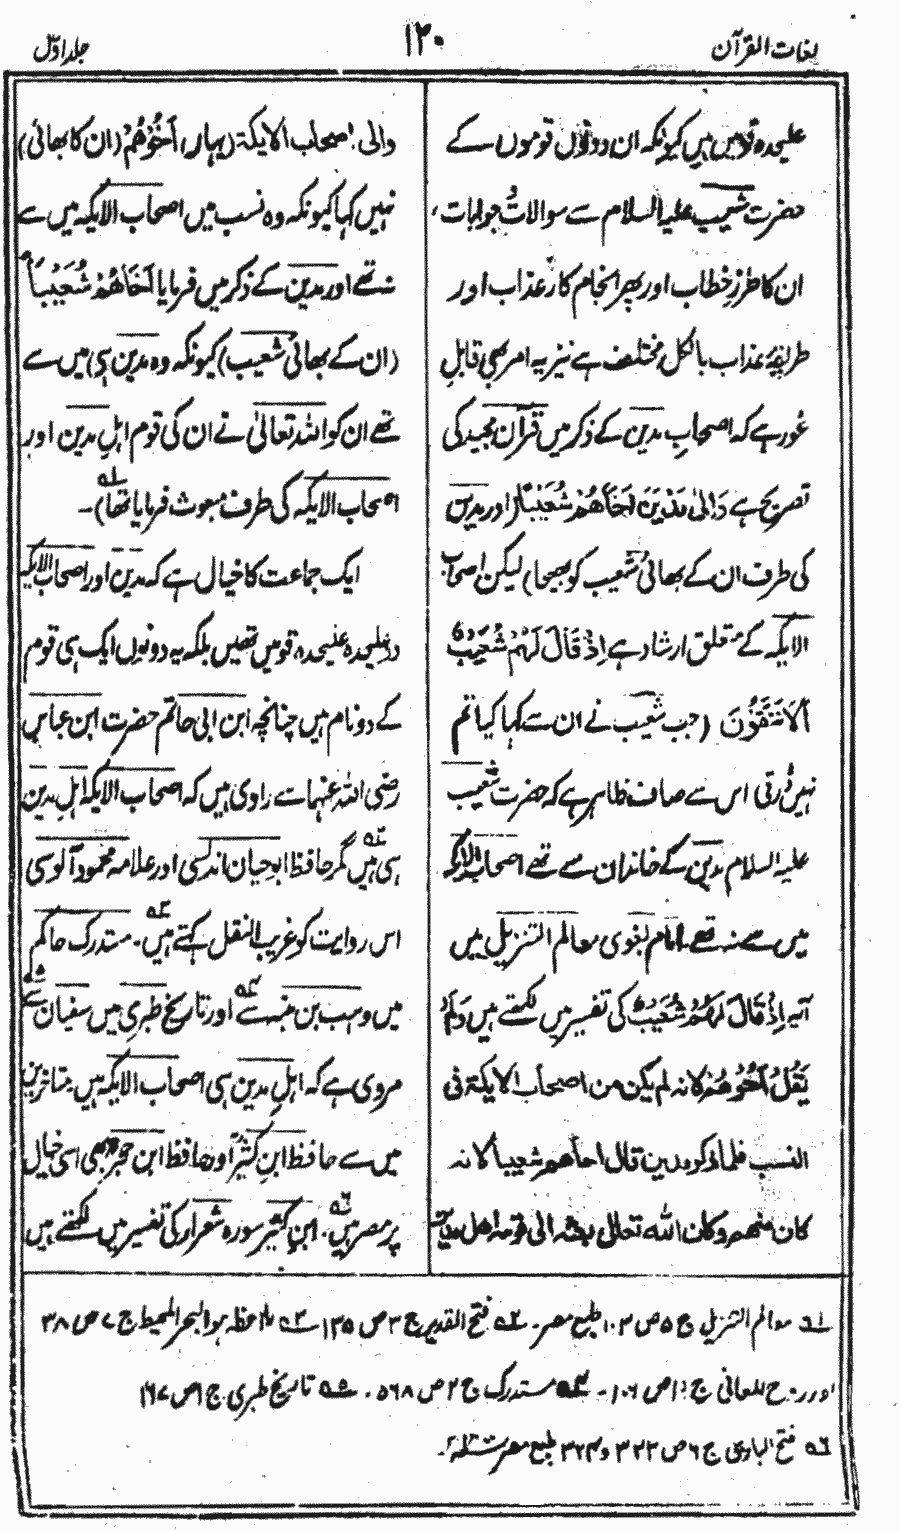 لغات القرآن
۱۲۰
جلد اوّل
علیحدہ قومیں ہیں کیونکہ ان دونوں قوموں کے
حضرت شعیب علیہ السلام سے سوالات، جوابات،
ان کا طرزِ خطاب اور پھر انجام کار عذاب اور
طریقۂ عذاب بالکل مختلف ہے نیز یہ امر بھی قابلِ
غور ہے کہ اصحابِ مدین کے ذکر میں قرآن مجید کی
تصریح ہے وَاِلیٰ مَدْیَنَ اَخَاھُمْ شُعَیْبًا (اور مدین
کی طرف ان کے بھائی شعیب کو بھیجا) لیکن اصحاب
الایکہ کے متعلق ارشاد ہے اِذْ قَالَ لَہُمْ شُعَیْبٌ
اَلَا تَتَّقُوْنَ (جب شعیب نے ان سے کہا کیا تم
نہیں ڈرتے) اس سے صاف ظاہر ہے کہ حضرت شعیب
علیہ السلام مدین کے خاندان سے تھے اصحاب الایکہ
میں سے نہ تھے۔ امام بغوی معالم التنزیل میں
آیہ اِذْ قَالَ لَھُمْ شُعَیْبٌ کی تفسیر میں لکھتے ہیں وَلَمْ
یَقُلْ اَخُوْھُمْ لانہ لم یکن من اصحاب الایکۃ فی
النسب فلما ذکر مدین قال اخاھم شعیبا لانہ
کان منھم وکان اللہ تعالیٰ بعثہ الی قومہ اھل مدین
والی اصحاب الایکۃ (یہاں اَخُوْھُمْ (ان کا بھائی)
نہیں کہا کیونکہ وہ نسب میں اصحاب الایکہ میں سے
نہ تھے اور مدین کے ذکر میں فرمایا اَخَاھُمْ شُعَیْبًا
(ان کے بھائی شعیب) کیونکہ وہ مدین ہی میں سے
تھے ان کو اللہ تعالیٰ نے ان کی قوم اہلِ مدین اور
اصحاب الایکہ کی طرف مبعوث فرمایا تھا)۔ ۱؎
ایک جماعت کا خیال ہے کہ مدین اور اصحاب الایکہ
دو علیحدہ علیحدہ قومیں تھیں بلکہ یہ دونوں ایک ہی قوم
کے دو نام ہیں چنانچہ ابن ابی حاتم حضرت ابن عباس
رضی اللہ عنہما سے راوی ہیں کہ اصحاب الایکہ اہلِ مدین
ہی ہیں ۲؎ مگر حافظ ابو حیان اندلسی اور علامہ محمود آلوسی
اس روایت کو غریب النقل کہتے ہیں ۳؎۔ مستدرک حاکم
میں وہب بن منبہ سے ۴؎ اور تاریخ طبری میں سفیان سے ۵؎
مروی ہے کہ اہلِ مدین ہی اصحاب الایکہ ہیں۔ متاخرین
میں سے حافظ ابنِ کثیر اور حافظ ابن حجر بھی اسی خیال
پر مصر ہیں ۶؎۔ ابنِ کثیر سورہ شعراء کی تفسیر میں لکھتے ہیں
۱؎ معالم التنزیل ج ۵ ص ۱۰۳ طبع مصر۔ ۲؎ فتح القدیر ج ۳ ص ۱۳۵ ۳؎ ملاحظہ ہو البحر المحیط ج ۷ ص ۳۸
اور روح المعانی ج ۱ ص ۱۰۶۔ ۴؎ مستدرک ج ۲ ص ۵۶۸۔ ۵؎ تاریخ طبری ج ۱ ص ۱۶۷
۶؎ فتح الباری ج ۶ ص ۳۲۳ و ۳۲۴ طبع مصر